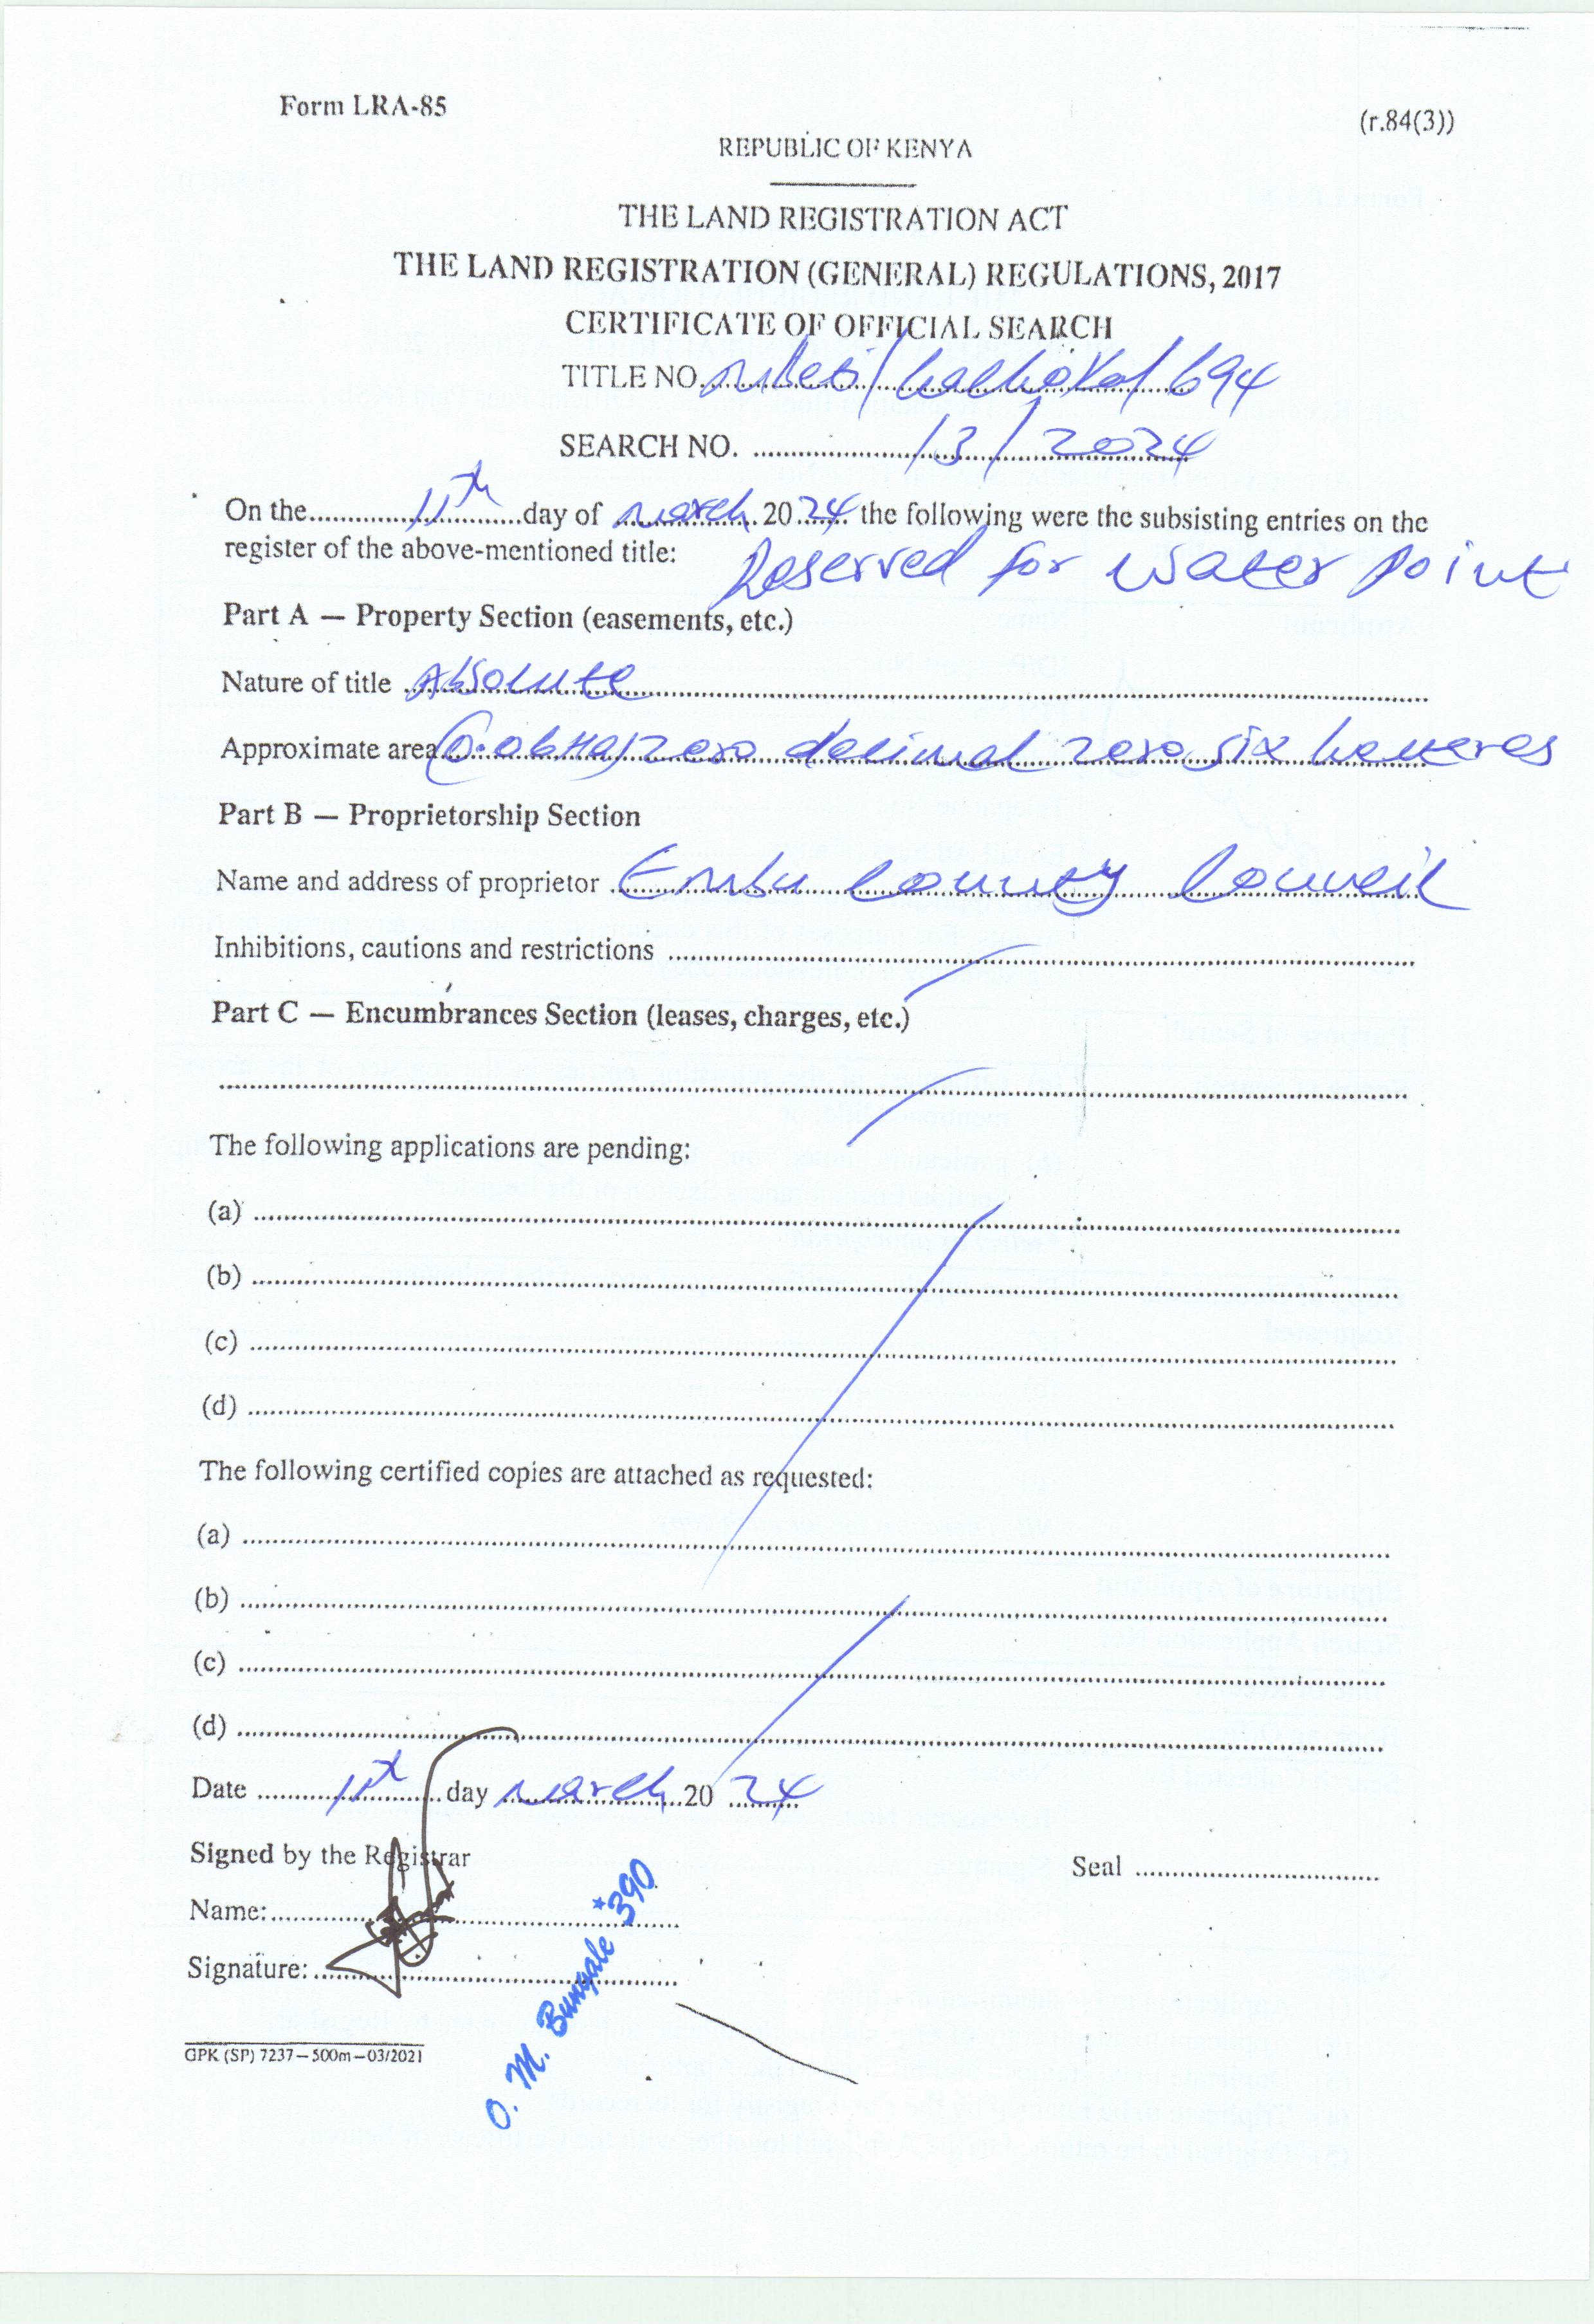 Form LRA-85
(r.84(3))
REPUBLIC OF KENYA
THE LAND REGISTRATION ACT
THE LAND REGISTRATION (GENERAL) REGULATIONS, 2017
CERTIFICATE OF OFFICIAL SEARCH
TITLE NO. 694
SEARCH NO. /3/2024
On the 11th day of March 2024 the following were the subsisting entries on the
register of the above-mentioned title: Reserved for water point
Part A — Property Section (easements, etc.)
Nature of title Absolute
Approximate area (0.06Ha) zero decimal zero six hectares
Part B — Proprietorship Section
Name and address of proprietor Embu County Council
Inhibitions, cautions and restrictions
Part C — Encumbrances Section (leases, charges, etc.)
The following applications are pending:
(a)
(b)
(c)
(d)
The following certified copies are attached as requested:
(a)
(b)
(c)
(d)
Date 11th day March 2024
Signed by the Registrar
Seal
Name:
Signature:
O. M. Bungale *390
GPK (SP) 7237—500m—03/2021